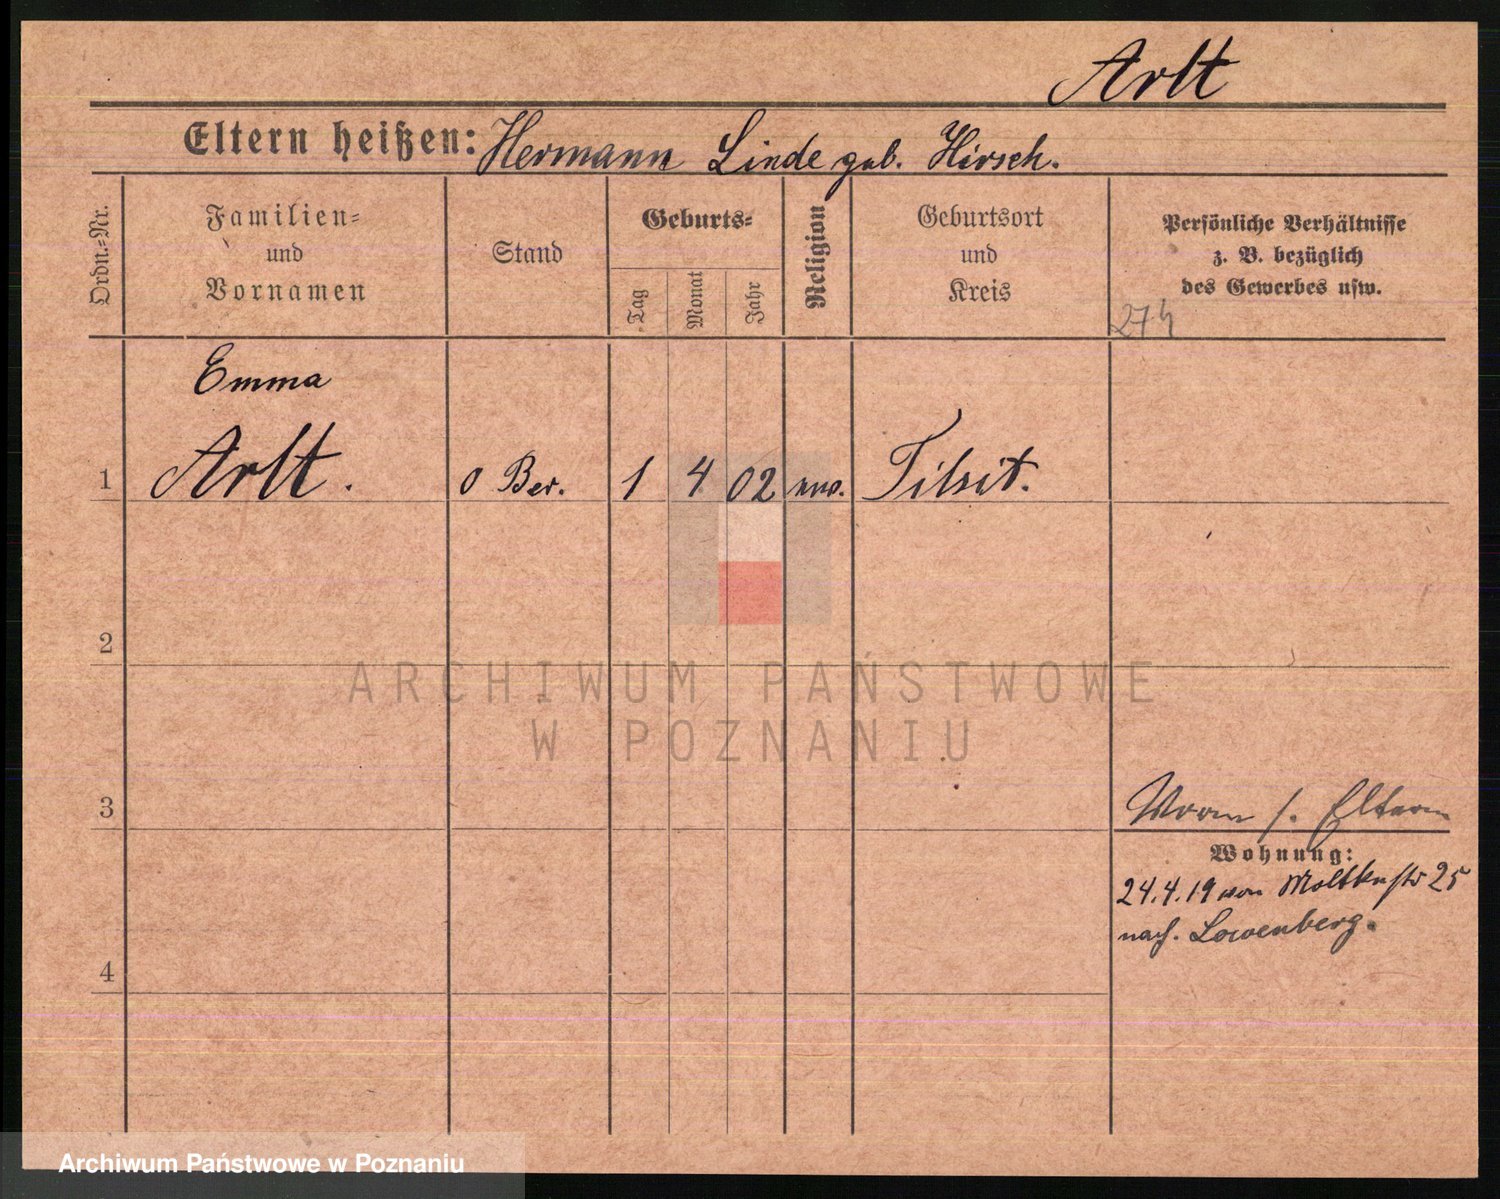 Arlt
Eltern heißen: Hermann Linde geb. Hirsch.
Ordn.=Nr.
Familien=
und
Vornamen
Stand
Geburts=
Tag
Monat
Jahr
Religion
Geburtsort
und
Kreis
Persönliche Verhältnisse
z. B. bezüglich
des Gewerbes usw.
274
Emma
1 Arlt. o Ber. 1 4 02 Tilsit.
2
ARCHIWUM PAŃSTWOWE
W POZNANIU
3
s. Eltern
Wohnung:
24.4.19 von Moltkestr 25
nach. Lowenberg.
4
Archiwum Państwowe w Poznaniu